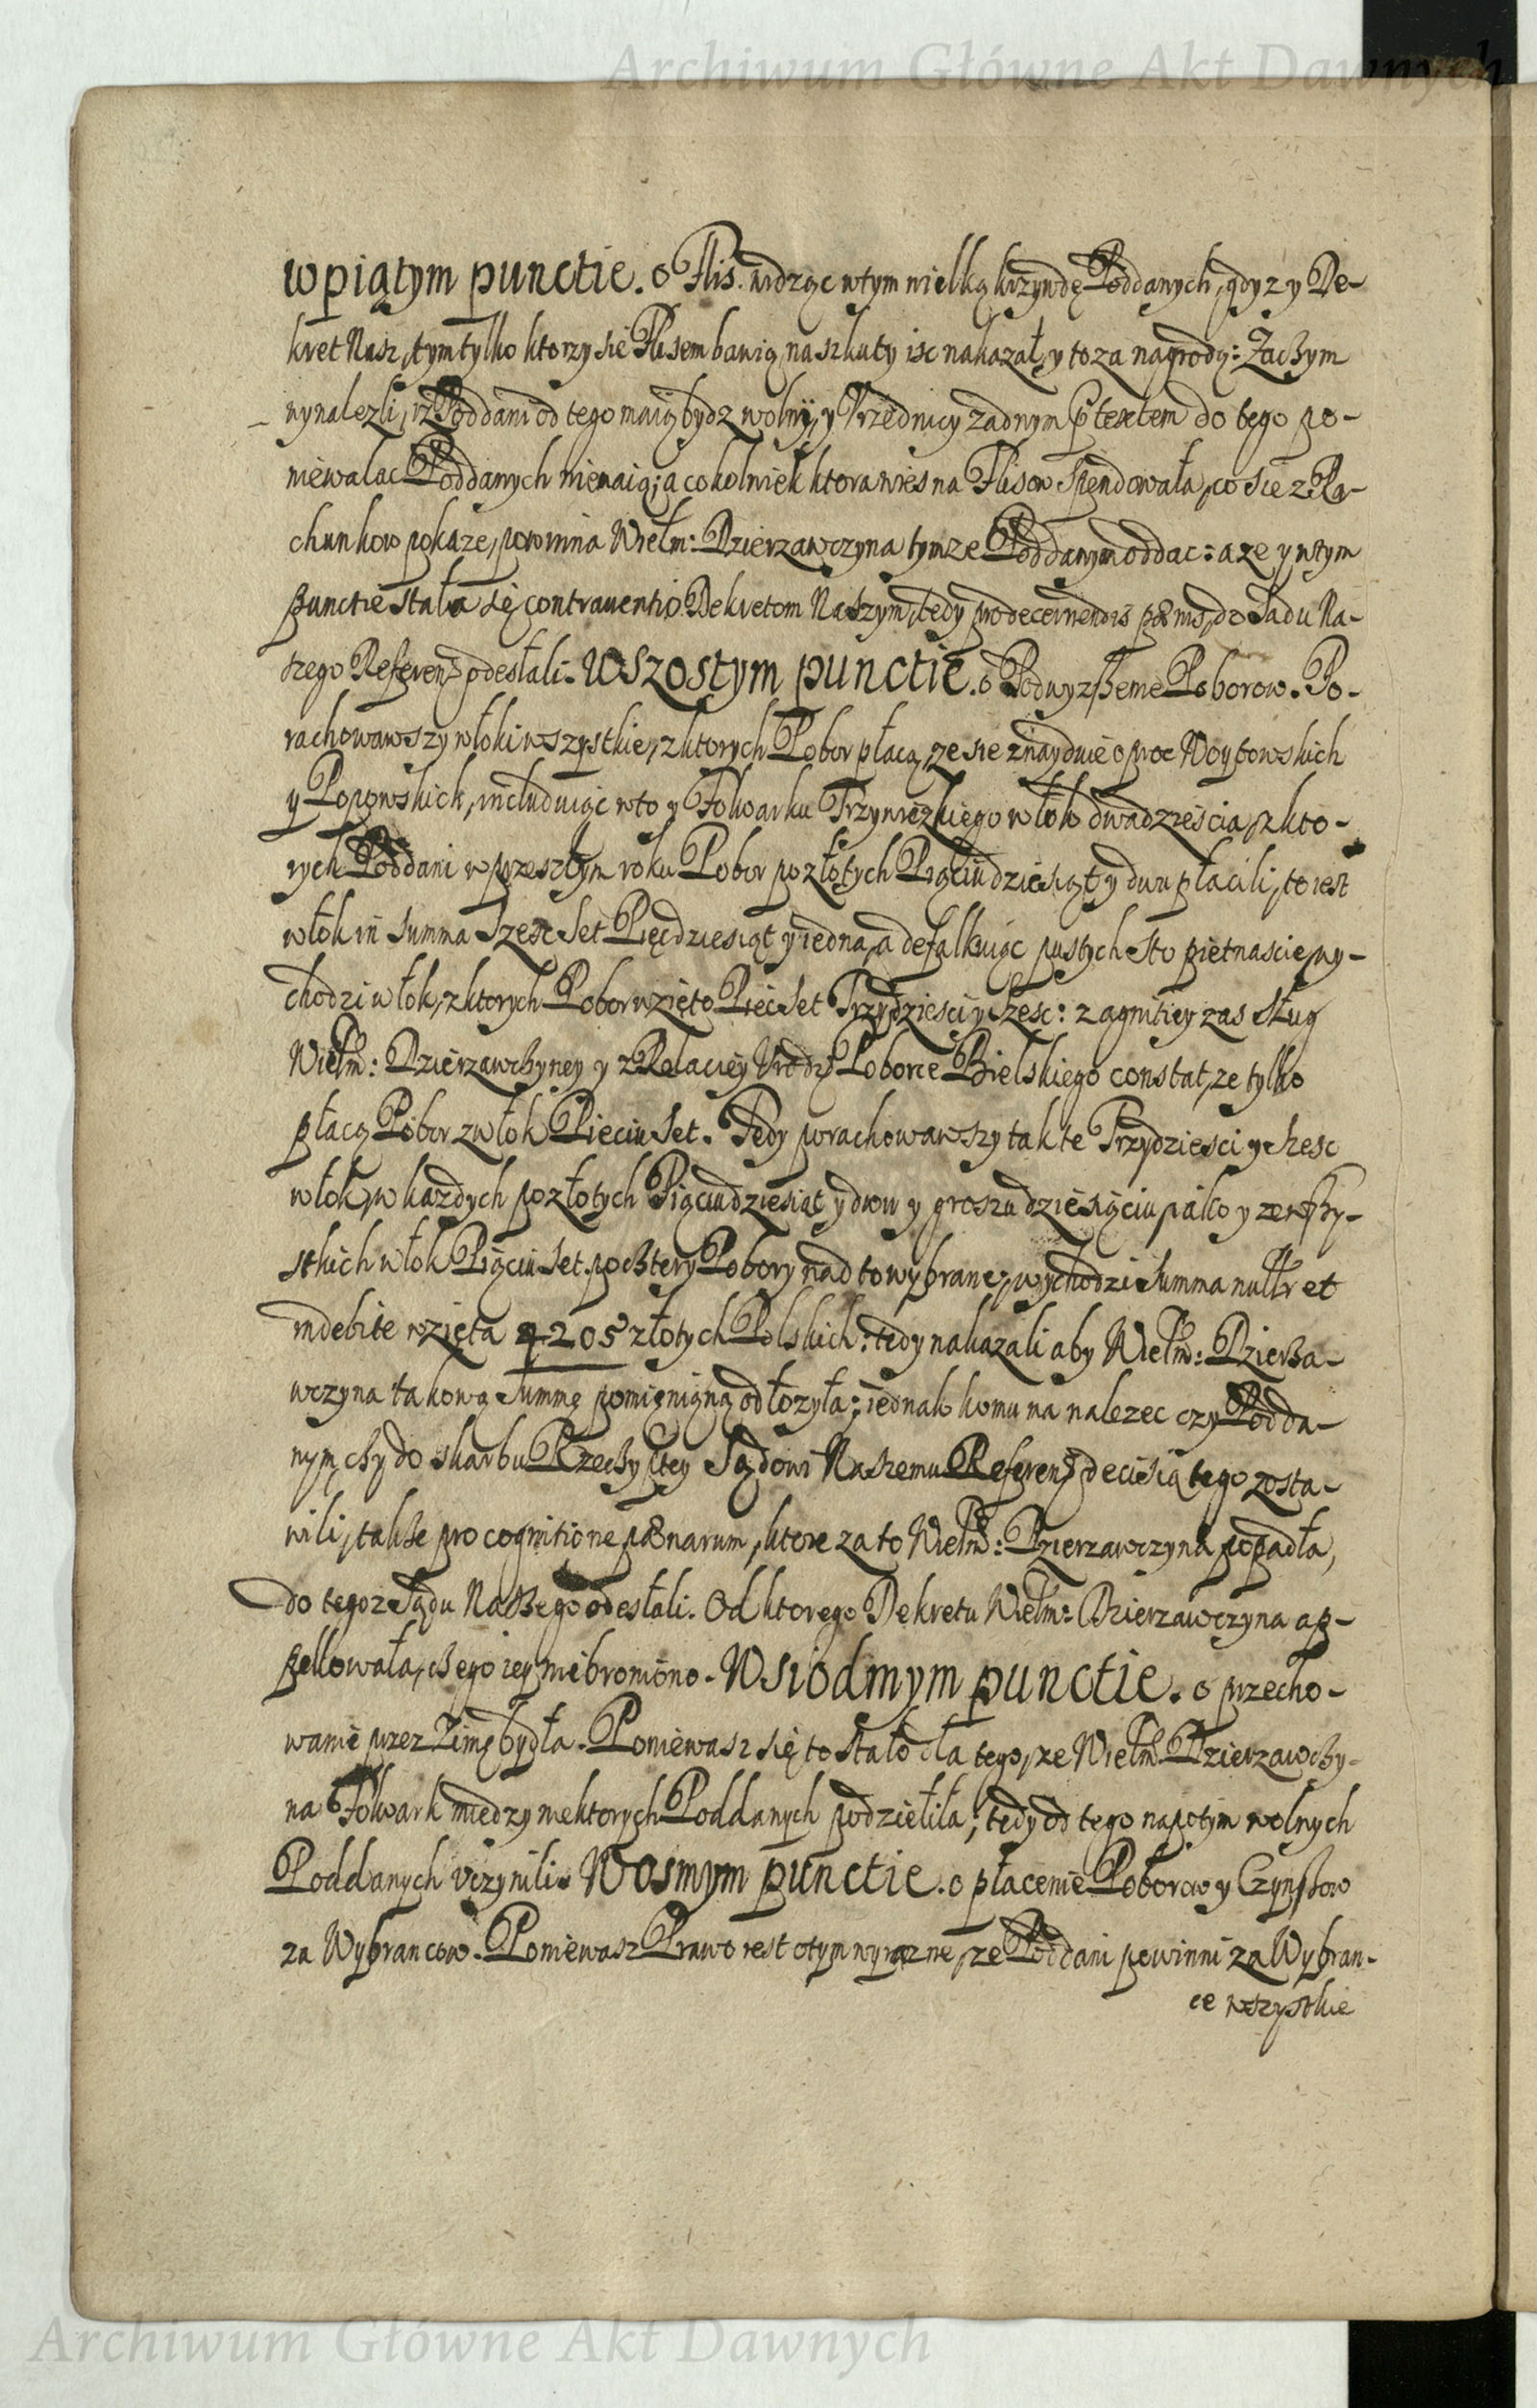 Archiwum Główne Akt Dawnych
w piątym punctie. o Flis. widząc w tym wielką krzywdę Poddanych, gdyz y De-
kret Nasz, tym tylko ktorzy sie Flisem bawią na szkuty isc nakazał, y to za nagrodą: Zaczym
wynalezli, iz Poddani od tego maią bydz wolni, y Vrzędnicy zadnym ptextem do tego po-
niewalac Poddanych niemaią; a cokolwiek ktora wies na Flisow spendowała, co sie z Ra-
chunkow pokaze, powinna Wielm: Dzierzawczyna tymze Poddanym oddac: a ze y w tym
punctie stała się contrauentio Dekretom Naszym, tedy pro decernendis pænis, do Sadu Na-
szego Referen odesłali. W szostym punctie. o Podwyzszenie Poborow. Po-
rachowawszy włoki wszystkie, z ktorych Pobor płacą, ze sie znayduie oproc Woytowskich
y Popowskich, includuiąc w to y Folwarku Trzywiezkiego włok dwadziescia, z kto-
rych Poddani w przeszłym roku Pobor po złotych Piąciudziesiąt y dwu płacili, to iest
włok in summa Szesc Set Pięcdziesiąt y iedna, a defalkuiąc pustych sto pietnascie, wy-
chodzi włok, z ktorych Pobor wzięto Pięc Set Trzydziesci y szesc: z agnitiey zas sług
Wielm: Dzierzawczyney y z Relaciey Vrodz Poborce Bielskiego constat, ze tylko
płacą Pobor z włok Pieciu Set. Tedy porachowawszy tak te Trzydziesci y szesc
włok, w kazdych po złotych Piąciudziesiąt y dwu y groszu dziesięciu, iako y ze wszy-
stkich włok Piąciu Set. po cztery Pobory nad to wybrane, wychodzi summa nullr et
indebite wzięta 4205 złotych Polskich: tedy nakazali aby Wielm: Dzierza-
wczyna takową summę pomienioną odłozyła; iednak komu na nalezec czy Podda-
nym, czy do skarbu Rzeczyptey Sądowi Naszemu Referen decisią tego zosta-
wili, takze pro cognitione pænarum, ktore za to Wielm: Dzierzawczyna popadła,
do tegoz Sądu Naszego odesłali. Od ktorego Dekretu Wielm: Dzierzawczyna ap-
pellowała, czego iey niebroniono. W siodmym punctie. o przecho-
wanie przez Zimę bydła. Poniewasz się to stało dla tego, ze Wielm Dzierzawczy-
na Folwark miedzy niektorych Poddanych podzieliła; tedy od tego napotym wolnych
Poddanych vczynili. W osmym punctie. o płacenie Poborow y Czynszow
za Wybrancow. Poniewasz Prawo iest o tym wyrazne, ze Poddani powinni za Wybran-
ce wszystkie
Archiwum Główne Akt Dawnych